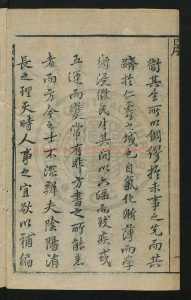 衛其生所以綢繆於未事之先而共
躋於仁壽之域也自氣化漸薄而學
術浸微民生其間以六淫而致疾或
五運而變常有非方書之所能悉
者而方今之士不深辨夫陰陽消
長之理天時人事之宜欲以補偏